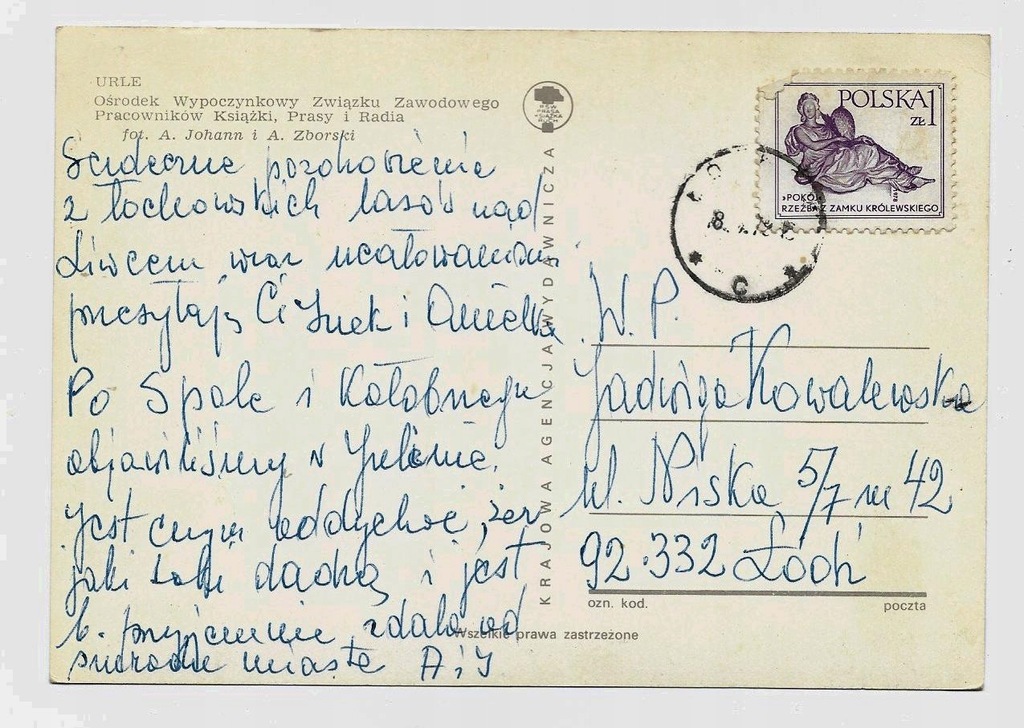 URLE
Ośrodek Wypoczynkowy Związku Zawodowego
Pracowników Książki, Prasy i Radia
fot. A. Johann i A. Zborski
Serdeczne pozdrowienia
z łochowskich lasów nad
Liwcem wraz ucałowaniami
przesyłają Ci Irek i Anielka
Po Spale i Kołobrzegu
objawiliśmy w
Jest czym oddychać, żer
jaki taki dadzą i jest
b. przyjemnie, zdala od
smrodów miasta A i J
RSW PRASA
KSIĄŻKA
RUCH
KRAJOWA AGENCJA WYDAWNICZA
POLSKA 1
ZŁ
»POKÓJ«
RZEŹBA Z ZAMKU KRÓLEWSKIEGO
1978
W.P.
Jadwiga Kowalewska
ul. Niska 5/7 m 42
92-332 Łódź
ozn. kod.
poczta
Wszelkie prawa zastrzeżone